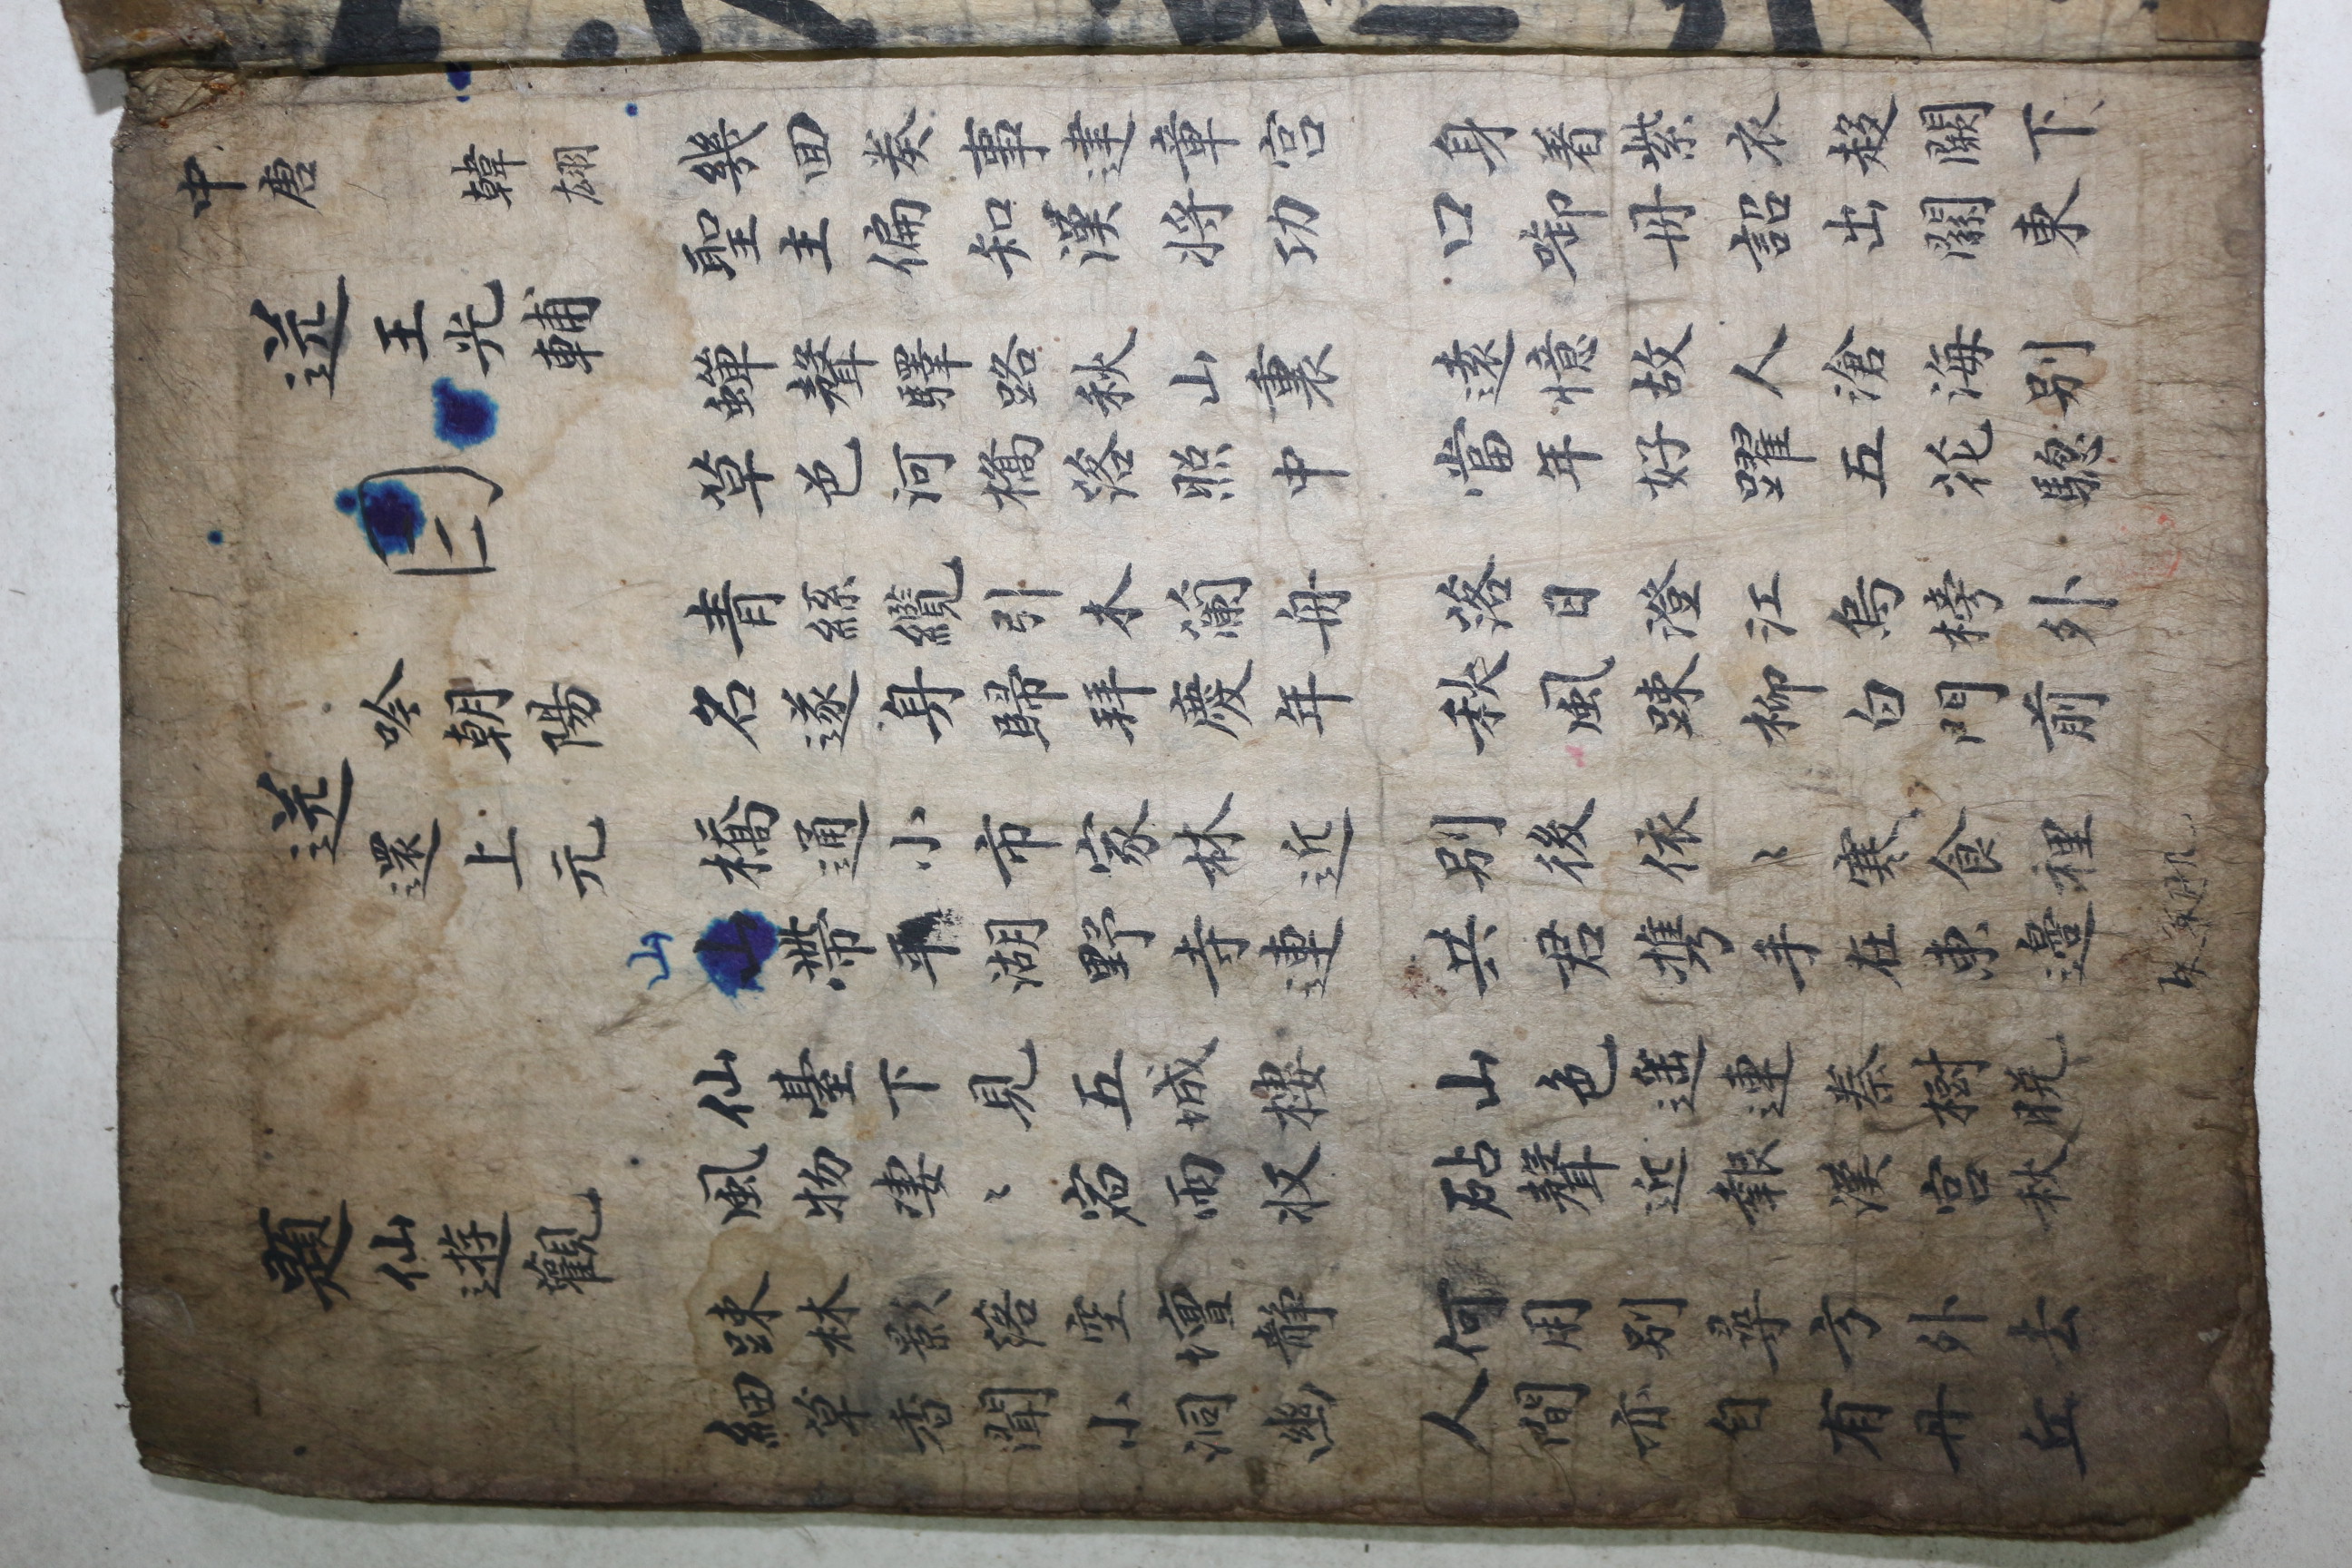 中唐 韓翃
送王光輔
幾回奏事建章宮 身着紫衣趍闕下
聖主偏知漢將功 口啣丹詔出關東
蟬聲驛路秋山裏 遠憶故人滄海別
草色河橋落照中 當年好躍五花驄
二
吟朝陽
送還上元
青絲纜引木蘭舟 落日澄江烏榜外
名遂身歸拜慶年 秋風踈柳白門前
橋通小市家林近 別後依〻寒食裡
山
山帶平湖野寺連 共君携手在東邊
題仙遊觀
仙臺下見五城樓 山色遥連秦樹晚
風物凄〻宿雨收 砧聲近報漢宮秋
踈林影落空壇静 何用別尋方外去
細草香聞小洞幽 人間亦自有丹丘